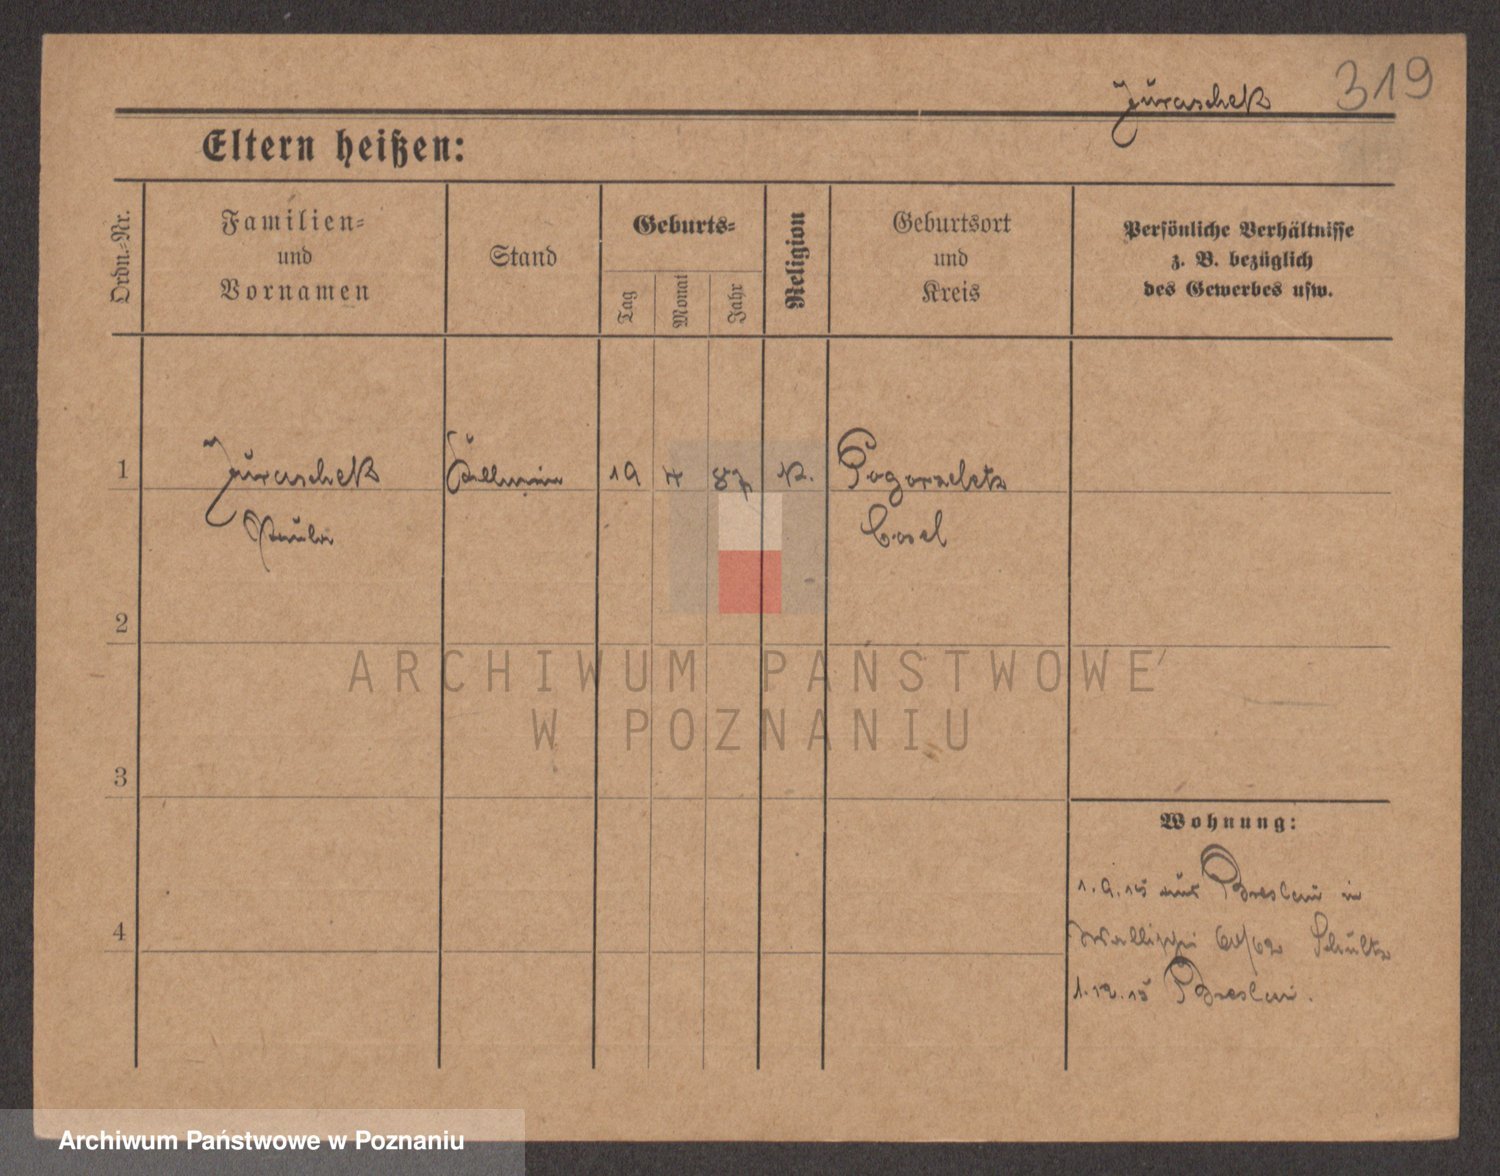 Juraschek 319
Eltern heißen:
Ordn.-Nr.
Familien-
und
Vornamen
Stand
Geburts-
Tag
Monat
Jahr
Religion
Geburtsort
und
Kreis
Persönliche Verhältnisse
z. B. bezüglich
des Gewerbes usw.
1 Juraschek 19 4 87 K. Pogorzeletz
Paula Cosel
2
3
4
Wohnung:
1.9.15 aus Breslau in
Wallischei Schultz
1.12.15 Breslau.
ARCHIWUM PAŃSTWOWE
W POZNANIU
Archiwum Państwowe w Poznaniu